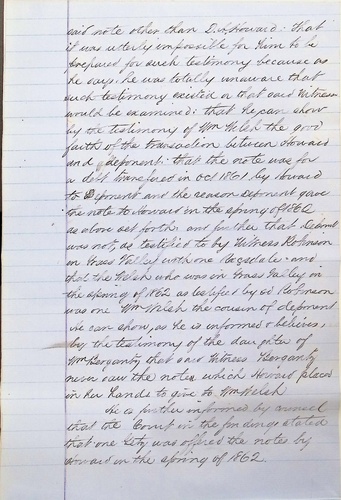 said note other than D.S. Howard: that
it was utterly impossible for him to be
prepared for such testimony because as
he says, he was totally unaware that
such testimony existed or that said Witness
would be examined; that he can show
by the testimony of Wm Welsh the good
faith of the transaction between Howard
and deponent. that the note was for
a debt transferred in Oct 1861 by Howard
to Deponent and the reason deponent gave
the note to Howard in the spring of 1862
as above set forth. and further that Deponent
was not, as testified to by Witness Robinson
in Grass Valley with one Ragsdale - and
that the Welsh who was in Grass Valley in
the spring of 1862 as testified by sd Robinson
was one Wm Welsh the cousin of deponent
he can show, as he is informed & believes,
by the testimony of the daughter of
Wm Berganty that said Witness Berganty
never saw the notes which Howard placed
in her hands to give to Wm Welsh
He is further informed by counsel
that the Court in the findings stated
that one was offered the notes by
Howard in the spring of 1862